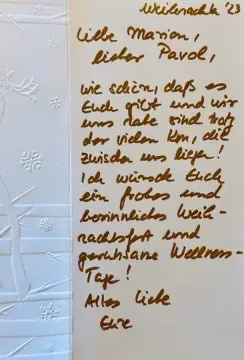 Weihnachten '23
Liebe Marion,
lieber Pavol,
wie schön, daß es
Euch gibt und wir
uns nahe sind trotz
der vielen Km, die
zwischen uns liegen!
Ich wünsche Euch
ein frohes und
besinnliches Weih-
nachtsfest und
geruhsame Wellness-
Tage!
Alles Liebe
Eure